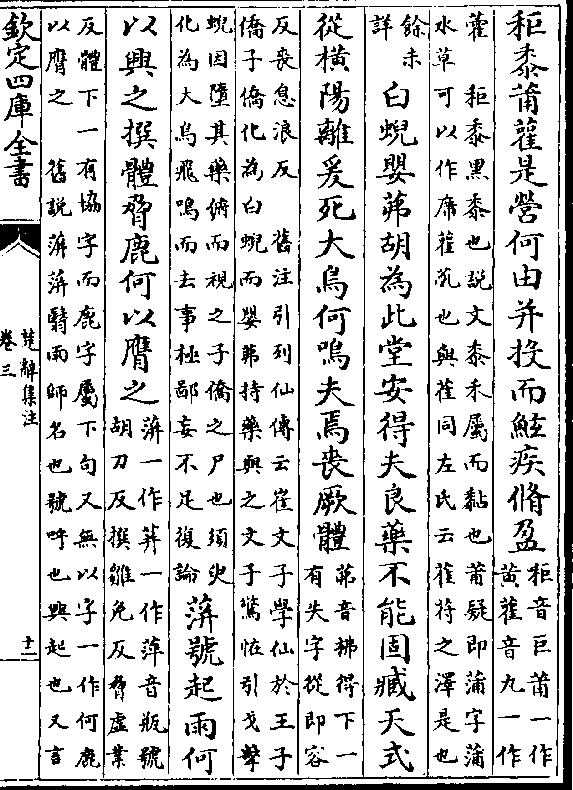 秬黍莆雚是營何由并投而鮌疾脩盈秬音巨莆一作
黄雚音九一作
雚 秬黍黑黍也説文黍禾屬而黏也莆疑即蒲字蒲
水草可以作席雚薍也與萑同左氏云萑苻之澤是也
餘未
詳 白蜺嬰茀胡為此堂安得夫良藥不能固臧天式
從横陽離爰死大鳥何鳴夫焉喪厥體茀音拂得下一
有失字從即容
反喪息浪反 舊注引列仙傳云崔文子學仙於王子
僑子僑化為白蜺而嬰茀持藥與之文子驚怪引戈擊
蜺因墮其藥俯而視之子僑之尸也須臾
化為大鳥飛鳴而去事極鄙妄不足復論 蓱號起雨何
以興之撰體脅鹿何以膺之蓱一作蓱一作萍音瓶號
胡刀反撰雛免反脅虚業
反體下一有協字而鹿字屬下句又無以字一作何鹿
以膺之 舊説蓱蓱翳雨師名也號呼也興起也又言
欽定四庫全書
楚辭集注
卷三
十二